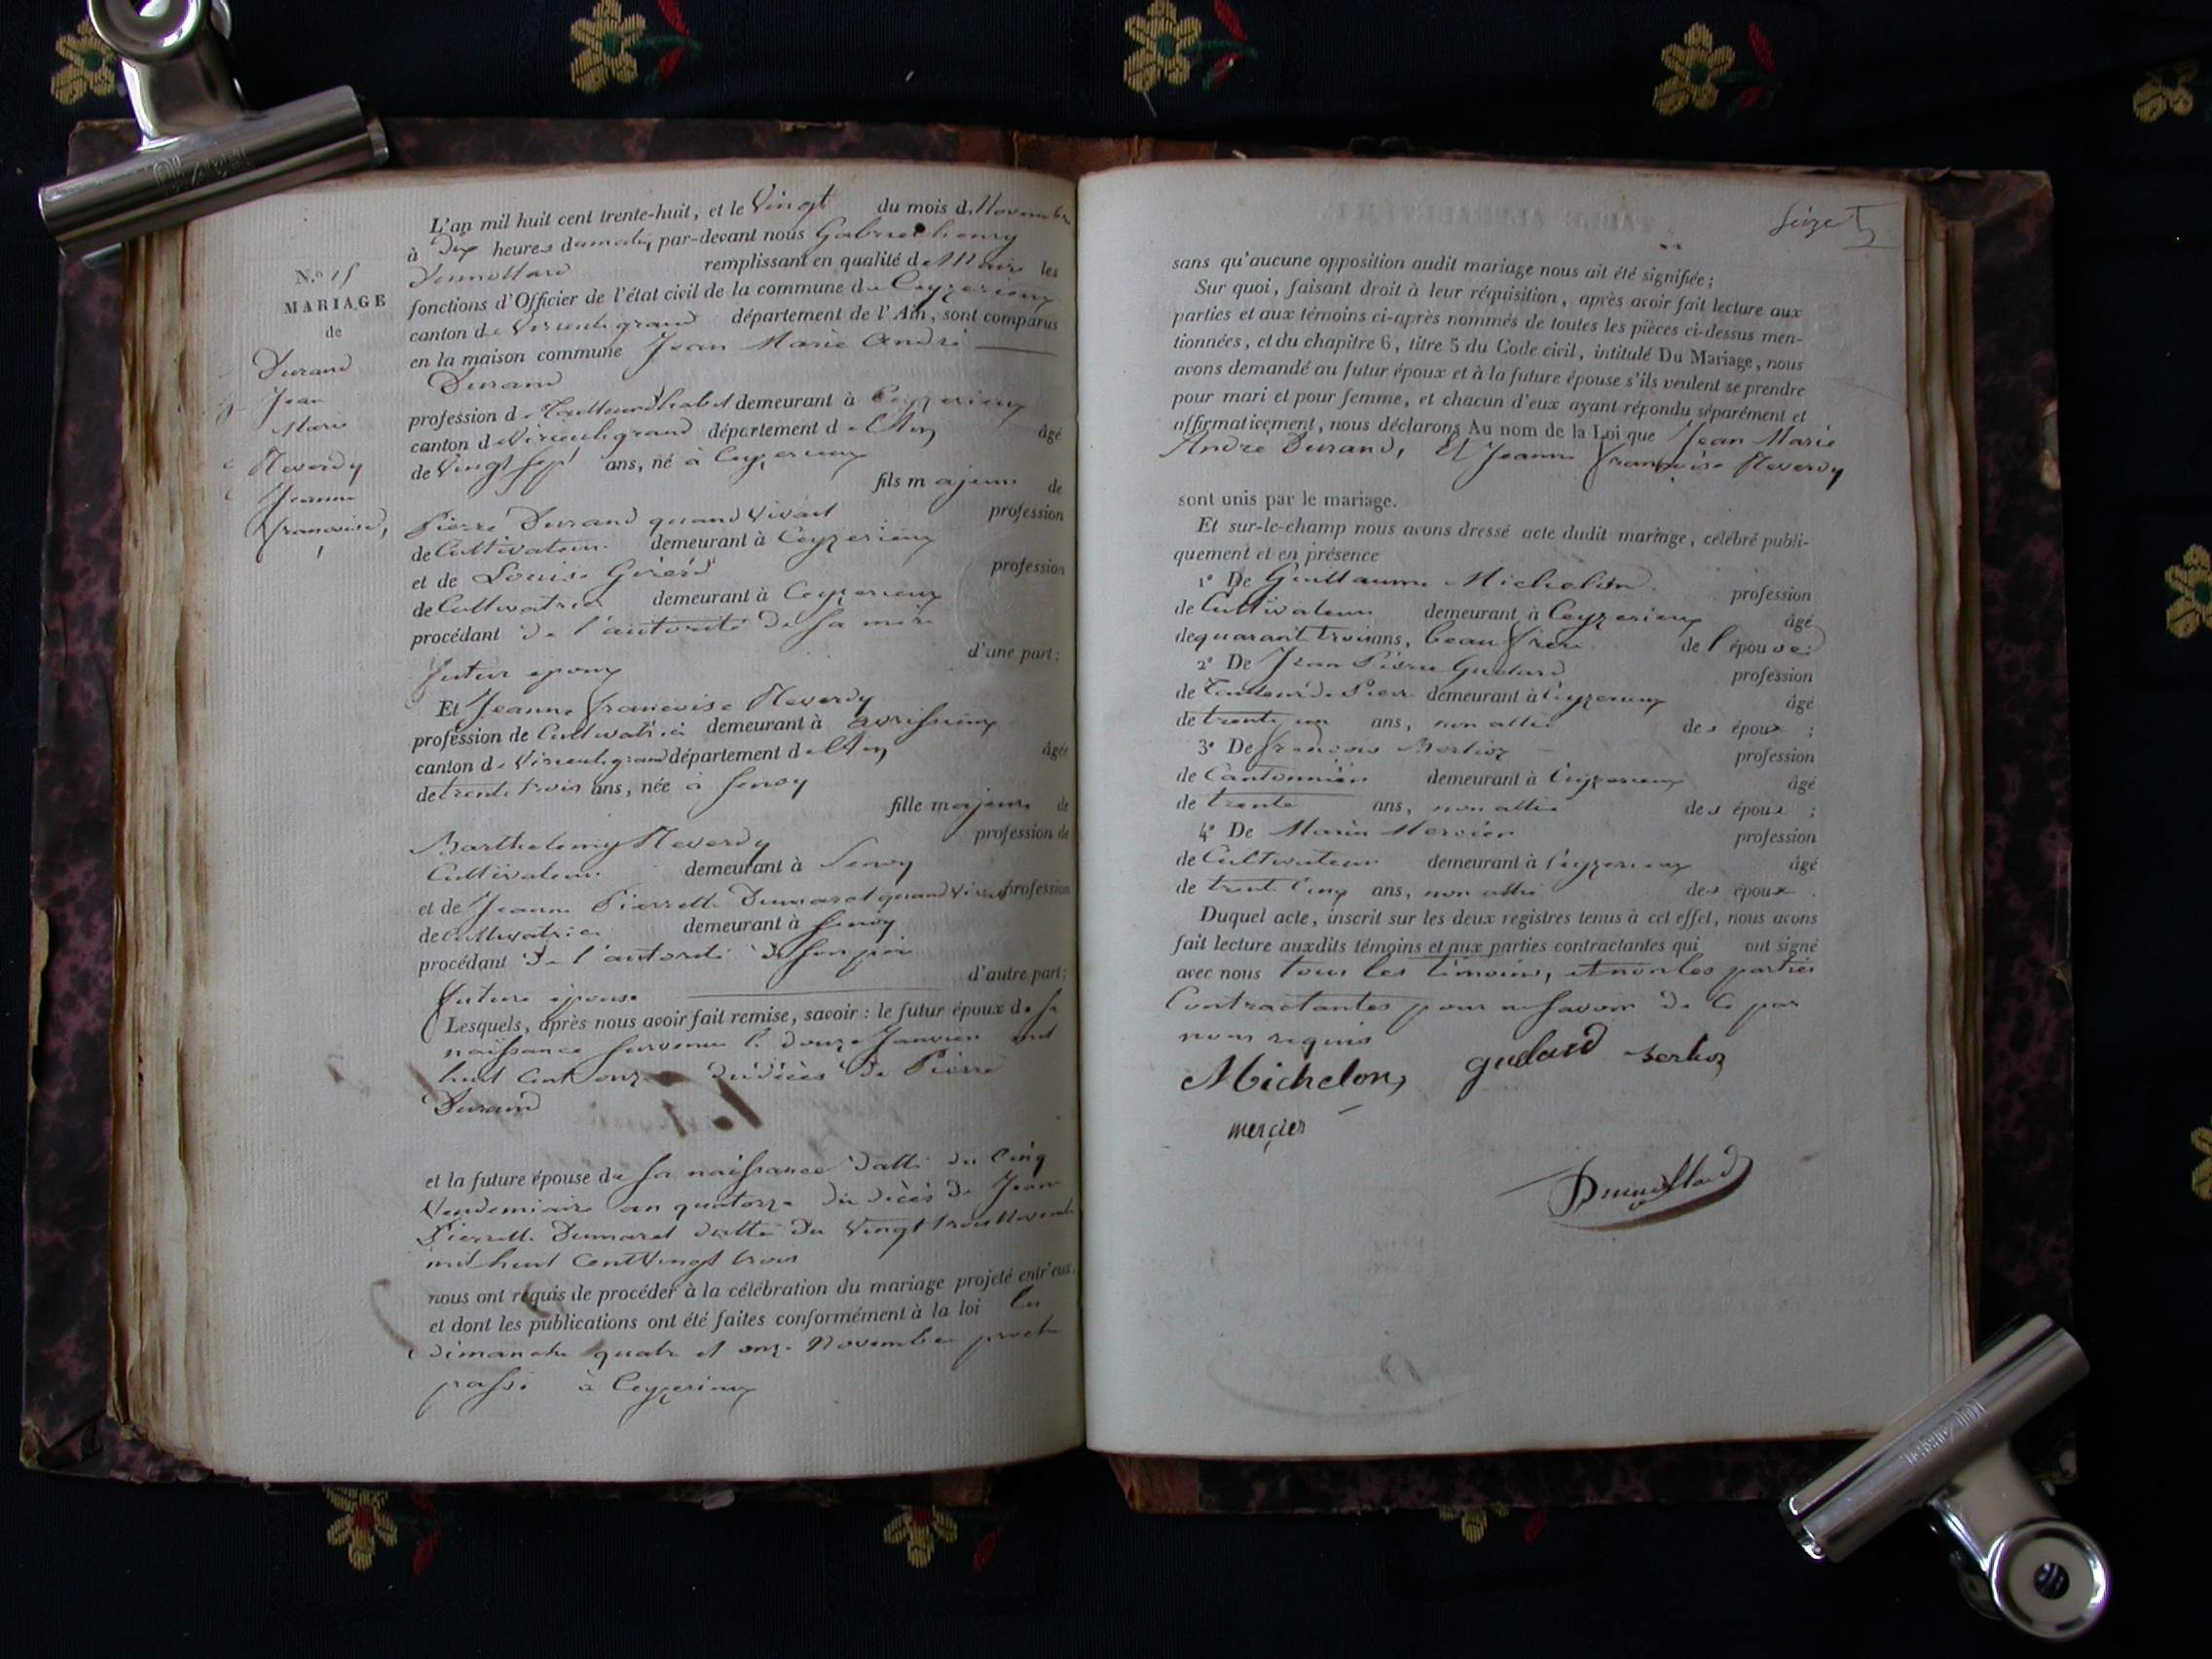 L'an mil huit cent trente-huit, et le Vingt du mois de Novembre
à Dix heures du matin, par-devant nous Gabriel henry
remplissant en qualité de Maire les
fonctions d'Officier de l'état civil de la commune de Ceyzerieux
canton de Virieu le grand département de l'Ain, sont comparus
en la maison commune Jean Marie André
Durand
N.º 15
MARIAGE
de
Durand
Jean
Marie
Reverdy
Jeanne
françoise,
profession de Tailleur d'habit demeurant à Ceyzerieux
canton de Virieu le grand département de l'Ain âgé
de Vingt sept ans, né à Ceyzerieux
fils majeur de
Pierre Durand quand vivait profession
de Cultivateur demeurant à Ceyzerieux
et de Louise Girerd profession
de Cultivatrice demeurant à Ceyzerieux
procédant de l'autorité de sa mère
d'une part;
futur epoux
Et Jeanne francoise Reverdy
profession de Cultivatrice demeurant à avrissieux
canton de Virieu le grand département de l'Ain âgée
de trente trois ans, née à Senoy
fille majeure de
Barthelemy Reverdy profession de
Cultivateur demeurant à Senoy
et de Jeanne Pierrette Dumarest quand vivait profession
de cultivatrice demeurant à Senoy
procédant de l'autorité de son père
d'autre part;
future épouse
Lesquels, après nous avoir fait remise, savoir : le futur époux de sa
naissance survenue le douze Janvier mil
huit cent onze du décès de Pierre
Durand
et la future épouse de sa naissance datté du Cinq
Vendemiaire an quatorze du décès de Jean
Pierrette Dumarest datté du Vingt trois Novemb
mil huit cent Vingt trois
nous ont requis de procéder à la célébration du mariage projeté entr'eux,
et dont les publications ont été faites conformément à la loi les
dimanche quatre et onze Novembre proch
passé à Ceyzerieux
seize
sans qu'aucune opposition audit mariage nous ait été signifiée;
Sur quoi, faisant droit à leur réquisition, après avoir fait lecture aux
parties et aux témoins ci-après nommés de toutes les pièces ci-dessus men-
tionnées, et du chapitre 6, titre 5 du Code civil, intitulé Du Mariage, nous
avons demandé au futur époux et à la future épouse s'ils veulent se prendre
pour mari et pour femme, et chacun d'eux ayant répondu séparément et
affirmativement, nous déclarons Au nom de la Loi que Jean Marie
André Durand, Et Jeanne françoise Reverdy
sont unis par le mariage.
Et sur-le-champ nous avons dressé acte dudit mariage, célébré publi-
quement et en présence
1º De Guillaume Michelon profession
de Cultivateur demeurant à Ceyzerieux âgé
de quarante trois ans, beau frère de l'épouse
2º De Jean Pierre Gudard profession
de Tailleur de Pierre demeurant à Ceyzerieux âgé
de trente un ans, non allié des époux ;
3º De françois Bertioz profession
de Cantonnier demeurant à Ceyzerieux âgé
de trente ans, non allié des époux ;
4º De Marin Mercier profession
de Cultivateur demeurant à Ceyzerieux âgé
de trente Cinq ans, non allié des époux .
Duquel acte, inscrit sur les deux registres tenus à cet effet, nous avons
fait lecture auxdits témoins et aux parties contractantes qui ont signé
avec nous tous les témoins, et non les parties
Contractantes pour ne savoir de ce par
nous requis
Michelon, gudard bertioz
mercier